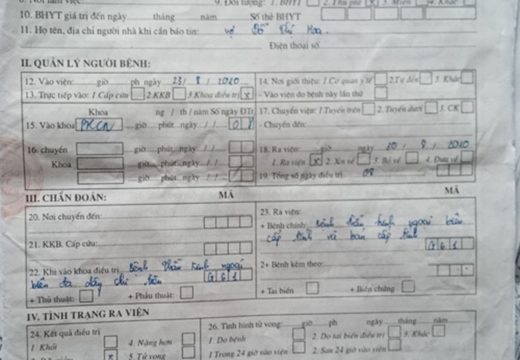 9. Đối tượng: 1. BHYT 2. Thu phí 3. Miễn 4. Khác
10. BHYT giá trị đến ngày tháng năm Số thẻ BHYT
11. Họ tên, địa chỉ người nhà khi cần báo tin: vợ Đỗ Thị Hoa
Điện thoại số
II. QUẢN LÝ NGƯỜI BỆNH:
12. Vào viện: giờ ph ngày 23/8/2020
14. Nơi giới thiệu: 1.Cơ quan y tế 2.Tự đến 3. Khác
13. Trực tiếp vào: 1.Cấp cứu 2.KKB 3.Khoa điều trị x
- Vào viện do bệnh này lần thứ
Khoa ng / th / năm Số ngày ĐTr
17. Chuyển viện: 1.Tuyến trên 2. Tuyến dưới 3. CK
15. Vào khoa PHCN giờ phút ngày / / 08
- Chuyển đến:
16. chuyển giờ phút ngày / /
18. Ra viện: giờ ngày 30/8/2020
Khoa giờ phút ngày / /
1. Ra viện x 2. Xin về 3. Bỏ về 4. Đưa về
giờ phút ngày / /
19. Tổng số ngày điều trị 08
III. CHẨN ĐOÁN: MÃ MÃ
20. Nơi chuyển đến:
23. Ra viện:
+ Bệnh chính: Bệnh thần kinh ngoại biên
21. KKB. Cấp cứu:
cấp tính và bán cấp tính
G61
22. Khi vào khoa điều trị Bệnh thần kinh ngoại
2+ Bệnh kèm theo:
biên đa dây chi trên G61
+ Thủ thuật: + Phẫu thuật:
+ Tai biến + Biến chứng
IV. TÌNH TRẠNG RA VIỆN
24. Kết quả điều trị
26. Tình hình tử vong: giờ ph ngày tháng năm
1. Khỏi 4. Nặng hơn
1. Do bệnh 2. Do tai biến điều trị 3. Khác
5. Tử vong
1.Trong 24 giờ vào viện 2. Sau 24 giờ vào viện